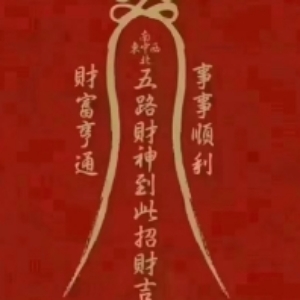 南
東中西
北
五路財神到此招財吉
事事順利
財富亨通